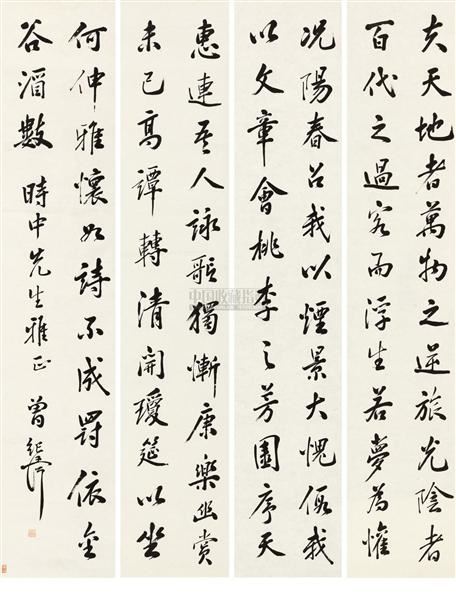 夫天地者萬物之逆旅光陰者
百代之過客而浮生若夢為懽
況陽春召我以煙景大愧假我
以文章會桃李之芳園序天
惠連吾人詠歌獨慚康樂幽賞
未已高譚轉清開瓊筵以坐
何伸雅懷如詩不成罰依金
谷酒數 時中先生雅正 曾紀